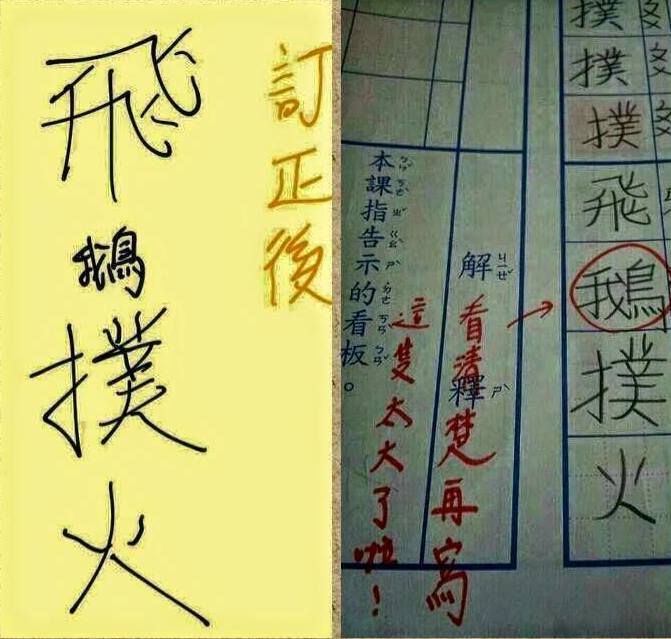 訂正後
飛鵝撲火
撲
撲
撲
飛鵝撲火
解釋
看清楚再寫
這隻太大了啦！
本課指告示的看板。